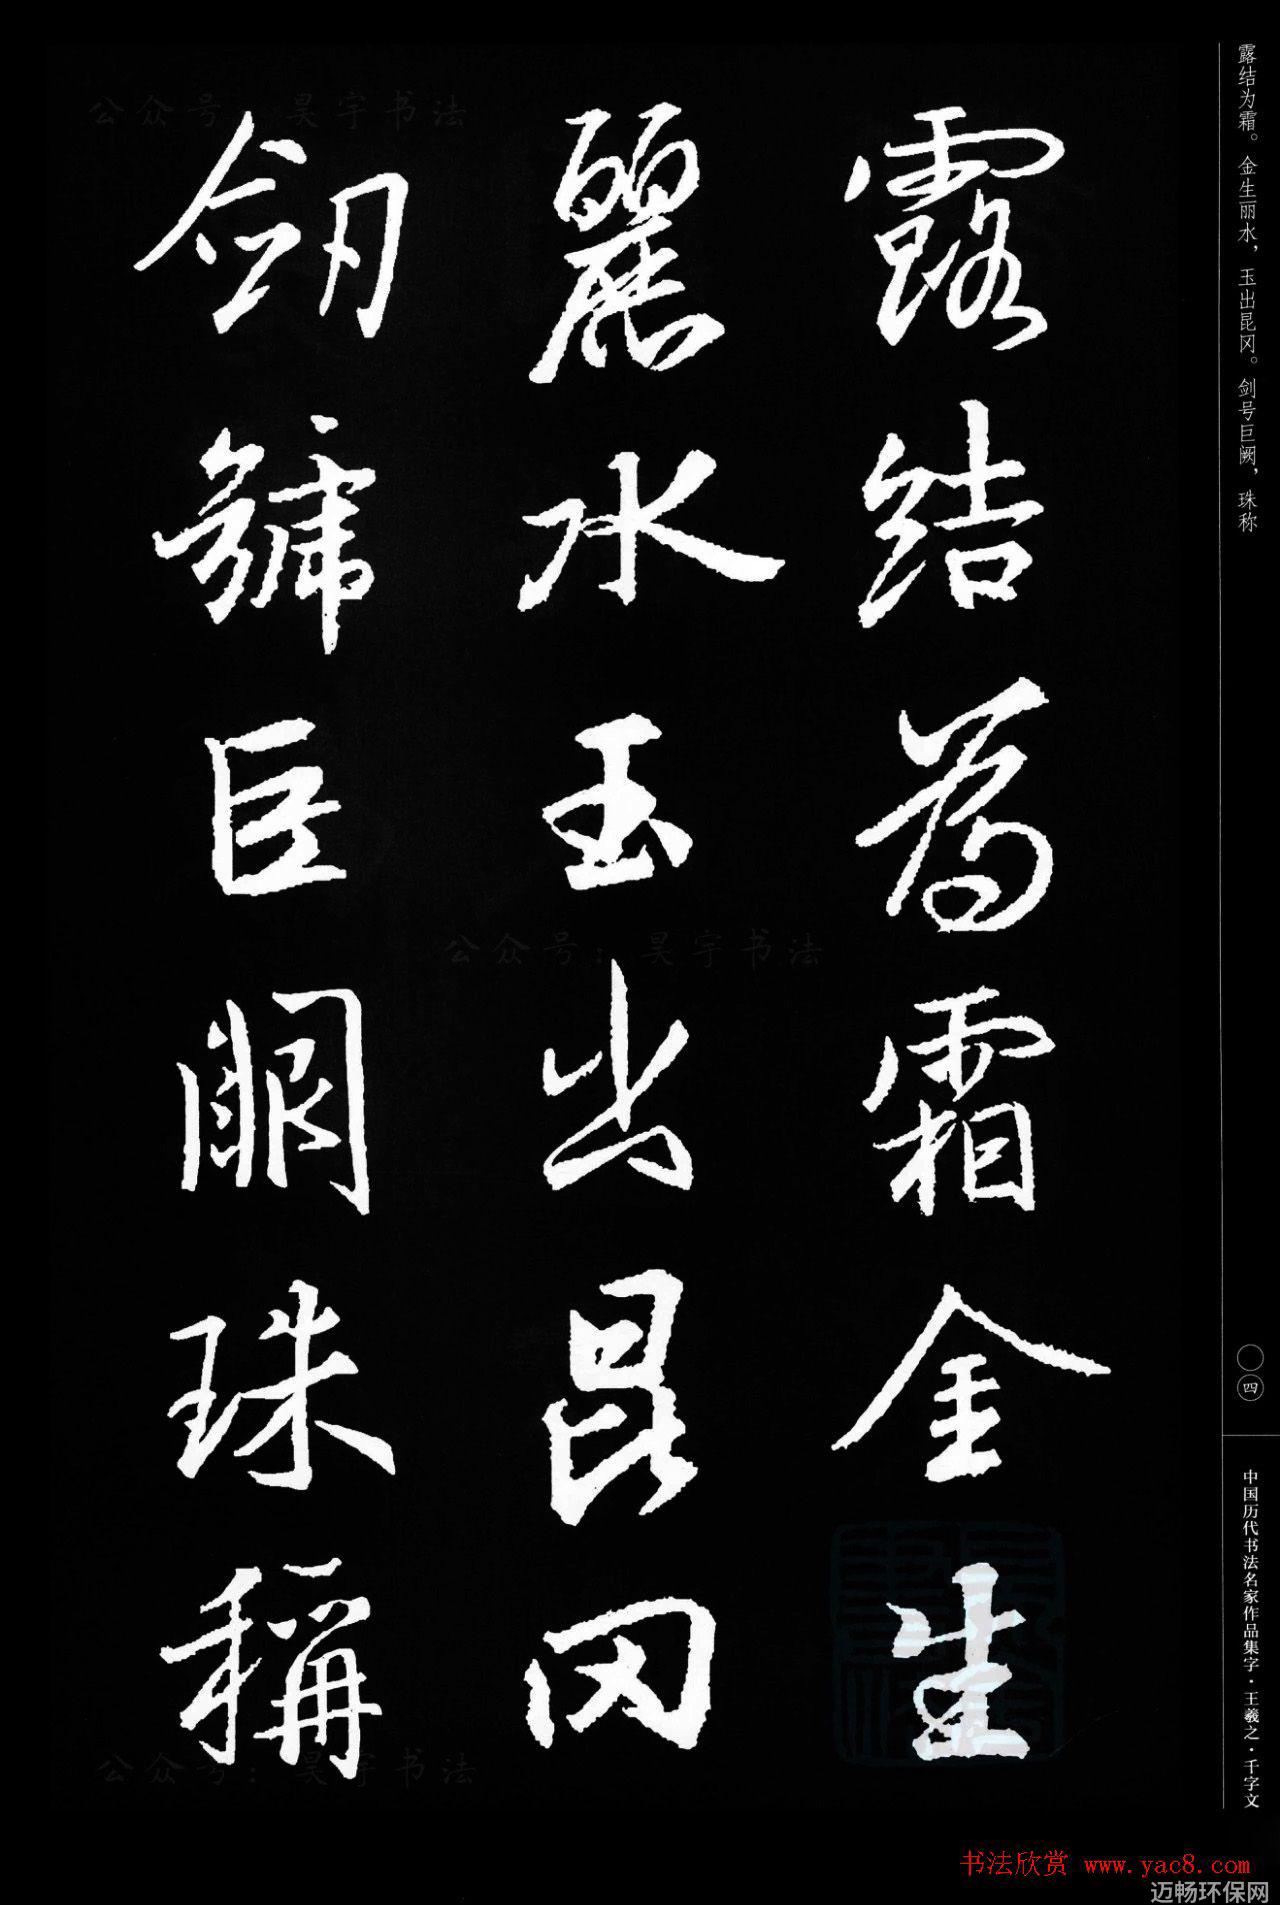 露结为霜。金生丽水，玉出昆冈。剑号巨阙，珠称
露結為霜金生
麗水玉出昆冈
劒號巨闕珠稱
公众号：昊宇书法
公众号：昊宇书法
公众号：昊宇书法
〇四
中国历代书法名家作品集字·王羲之·千字文
书法欣赏 www.yac8.com
迈畅环保网